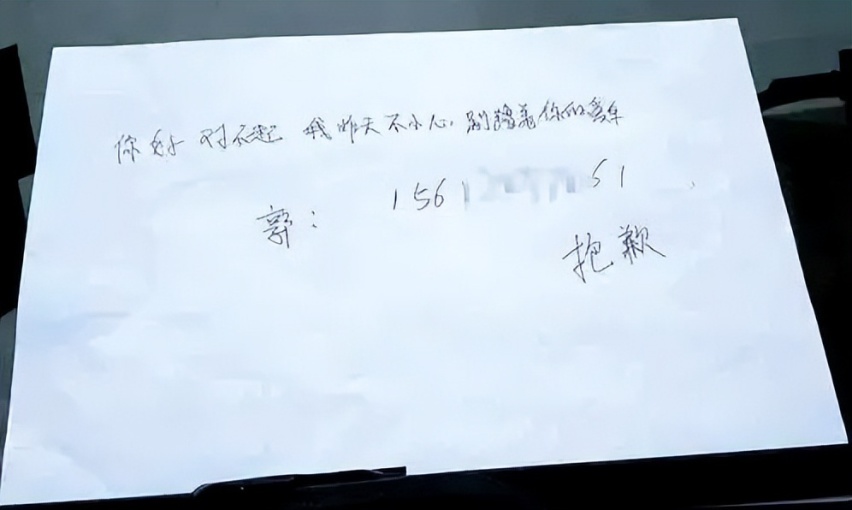 你好 对不起 我昨天不小心,剐蹭着你的爱车
郭: 156 51
抱歉